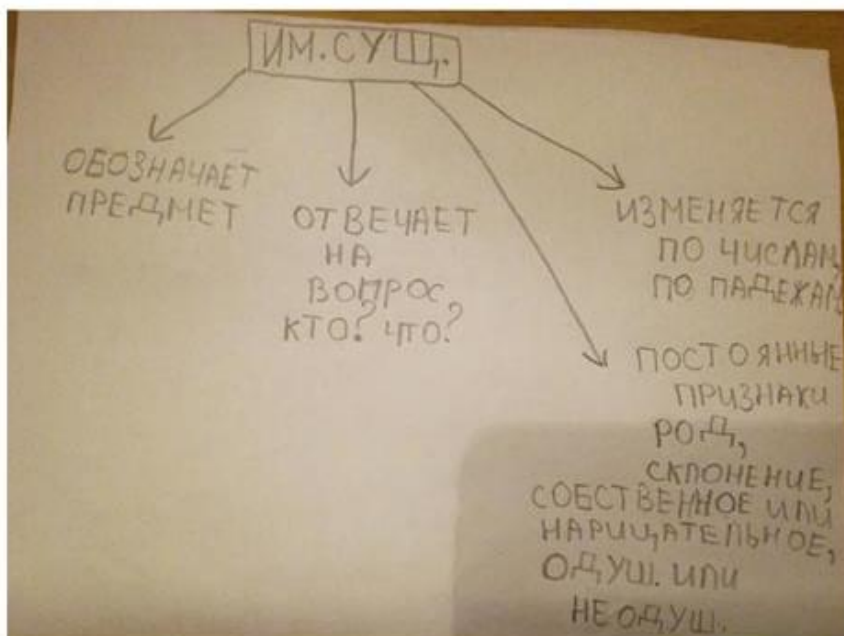 ИМ. СУЩ.
ОБОЗНАЧАЕТ
ПРЕДМЕТ
ОТВЕЧАЕТ
НА
ВОПРОС,
КТО? ЧТО?
ИЗМЕНЯЕТСЯ
ПО ЧИСЛАМ,
ПО ПАДЕЖАМ
ПОСТОЯННЫЕ
ПРИЗНАКИ
РОД,
СКЛОНЕНИЕ,
СОБСТВЕННОЕ ИЛИ
НАРИЦАТЕЛЬНОЕ,
ОДУШ. ИЛИ
НЕОДУШ.